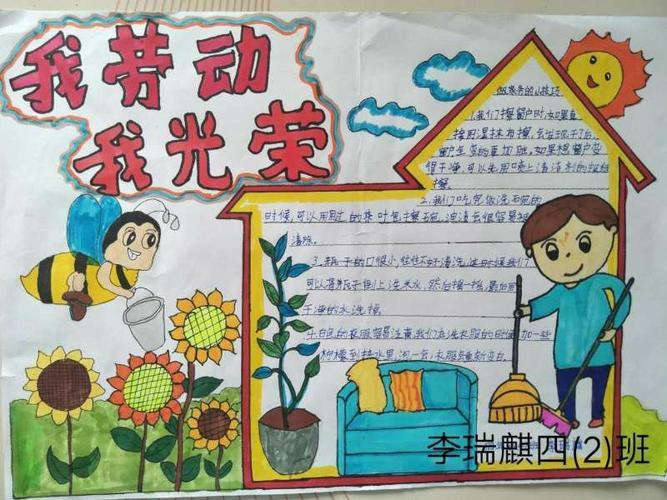 我劳动
我光荣
做家务的小技巧
1.我们擦窗户时,如果直
接用湿抹布擦,会发现干了后
窗户尘变的更加脏,如果想窗户变
得干净,可以先用喷上清洁剂的报纸
擦。
2.我们吃完饭洗碗的
时候,可以用过的茶叶包擦碗,油渍会很容易被
清除。
3.瓶子的口很小,往往不好清洗,这时候我们
可以将瓶子倒上洗米水,然后摇一摇,最后用
干净的水洗掉。
4.白色的衣服容易泛黄,我们在洗衣服的时候,加一些
柠檬到热水里,泡一会,衣服重新变白
李瑞麒四(2)班